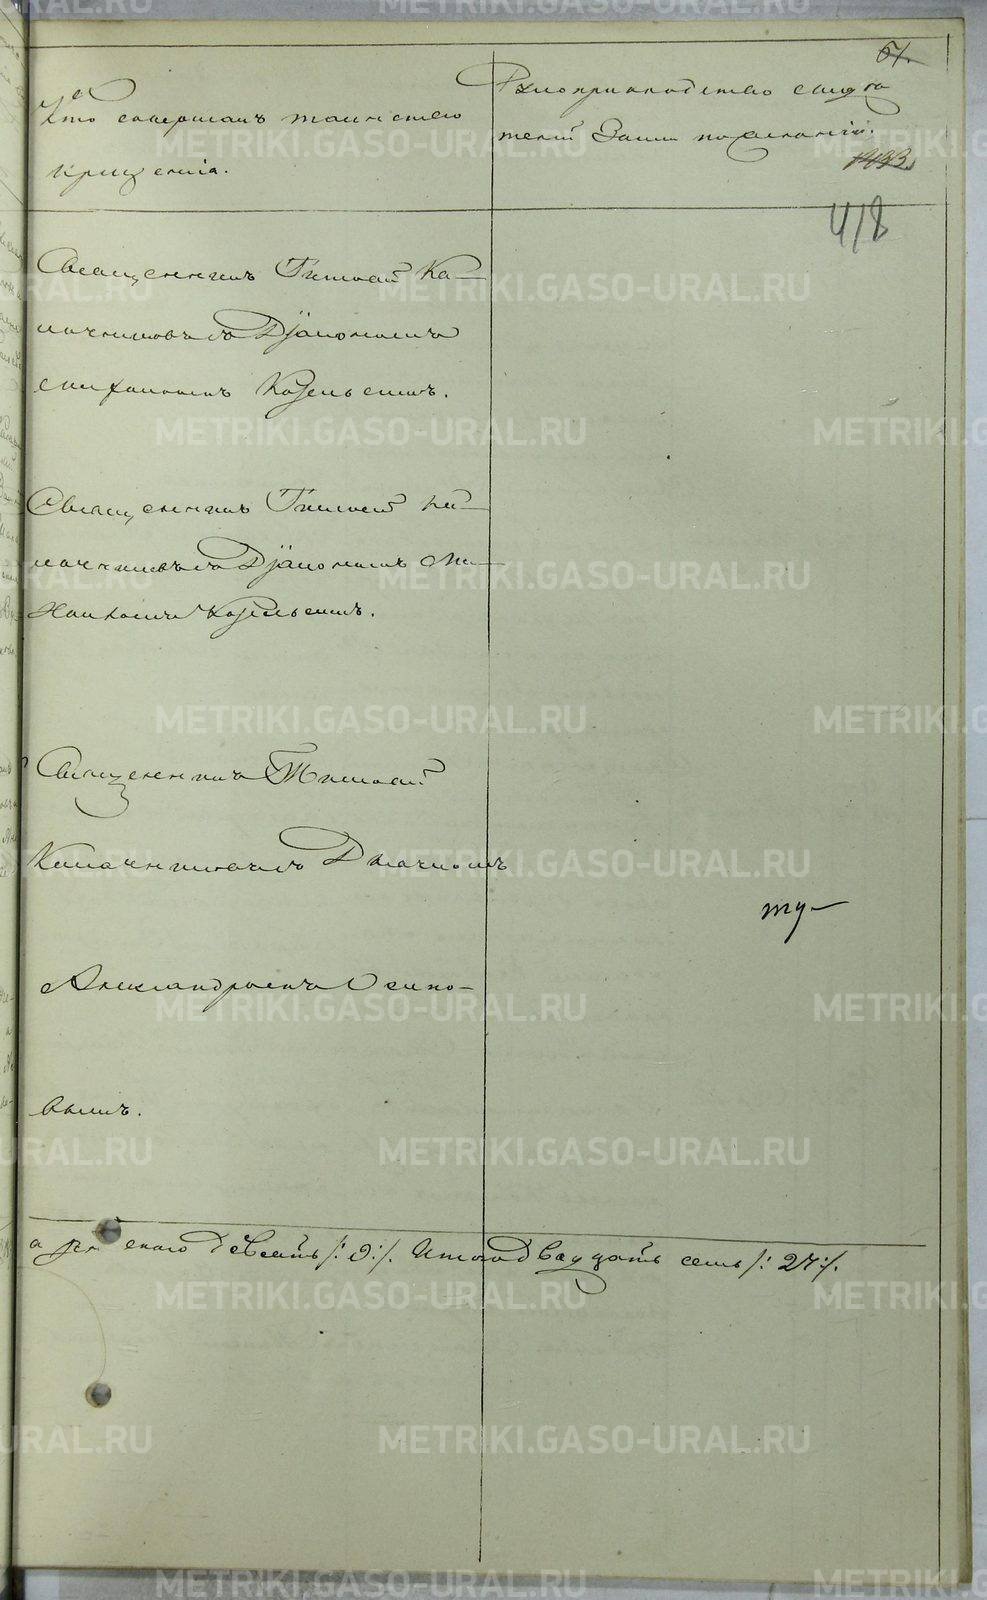 61.
Кто совершалъ таинство
крещенія.
Рукоприкладство свидѣ
телей записи по желанію.
418
Священникъ Тимофей Ка-
лачниковъ съ Діакономъ
Михаиломъ Козельскимъ.
Священникъ Тимофей Ка-
лачниковъ съ Діакономъ Ми-
хаиломъ Козельскимъ.
Священникъ Тимофей
Калачниковъ съ Дьячкомъ
Александромъ Осипо-
вымъ.
а женскаго девять /:9:/. Итого двадцать семь /:27:/.
METRIKI.GASO-URAL.RU